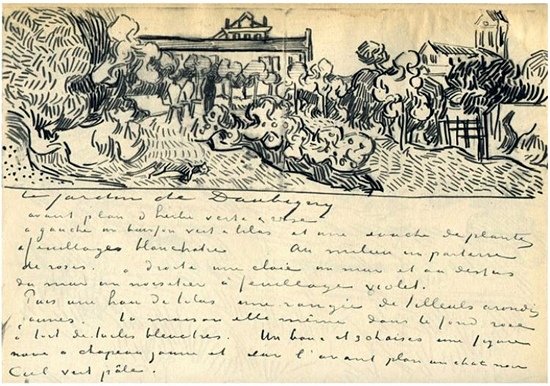 Le jardin de Daubigny
avant plan d'herbe verte & rose
a gauche un buisson vert & lilas et une souche de plantes
a feuillages blanchatre Au milieu un parterre
de roses. a droite une claie un mur et au dessus
du mur un noisetier à feuillage violet.
Puis une haie de lilas une rangée de tilleuls arrondis
jaunes. La maison elle même dans le fond rose
à toit de tuiles bleuatres. Un banc et 3 chaises une figure
noire à chapeau jaune et sur l'avant plan un chat noir
Ciel vert pâle.